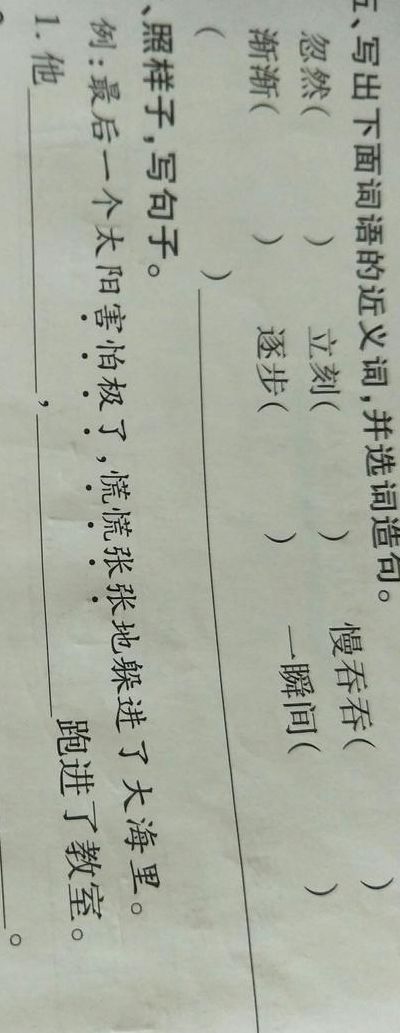 、写出下面词语的近义词,并选词造句。
忽然( ) 立刻( ) 慢吞吞( )
渐渐( ) 逐步( ) 一瞬间( )
( )
、照样子,写句子。
例:最后一个太阳害怕极了,慌慌张张地躲进了大海里。
1. 他 , 跑进了教室。
。